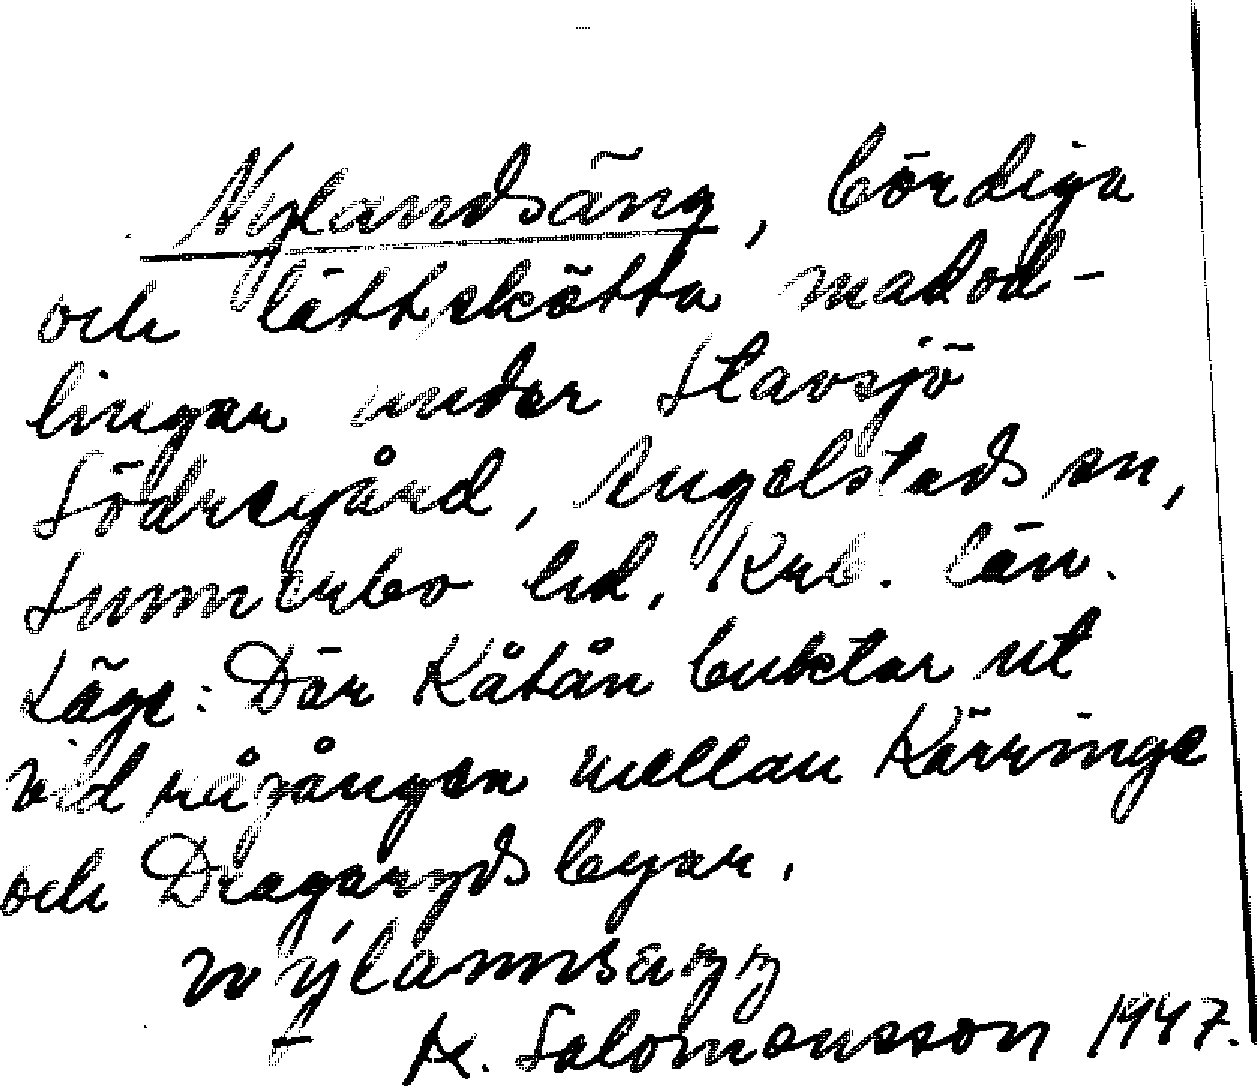 Nylandsäng, bördiga
och lättskötta madod-
lingar under Stavsjö
Södregård, Angelstads sn,
Sunnerbo hd, Krb. län.
Läge: Där Kåtån buktar ut
vid rågången mellan Kärringe
och Dragaryds byar.
nýlannsäŋŋ
A. Salomonsson 1947.